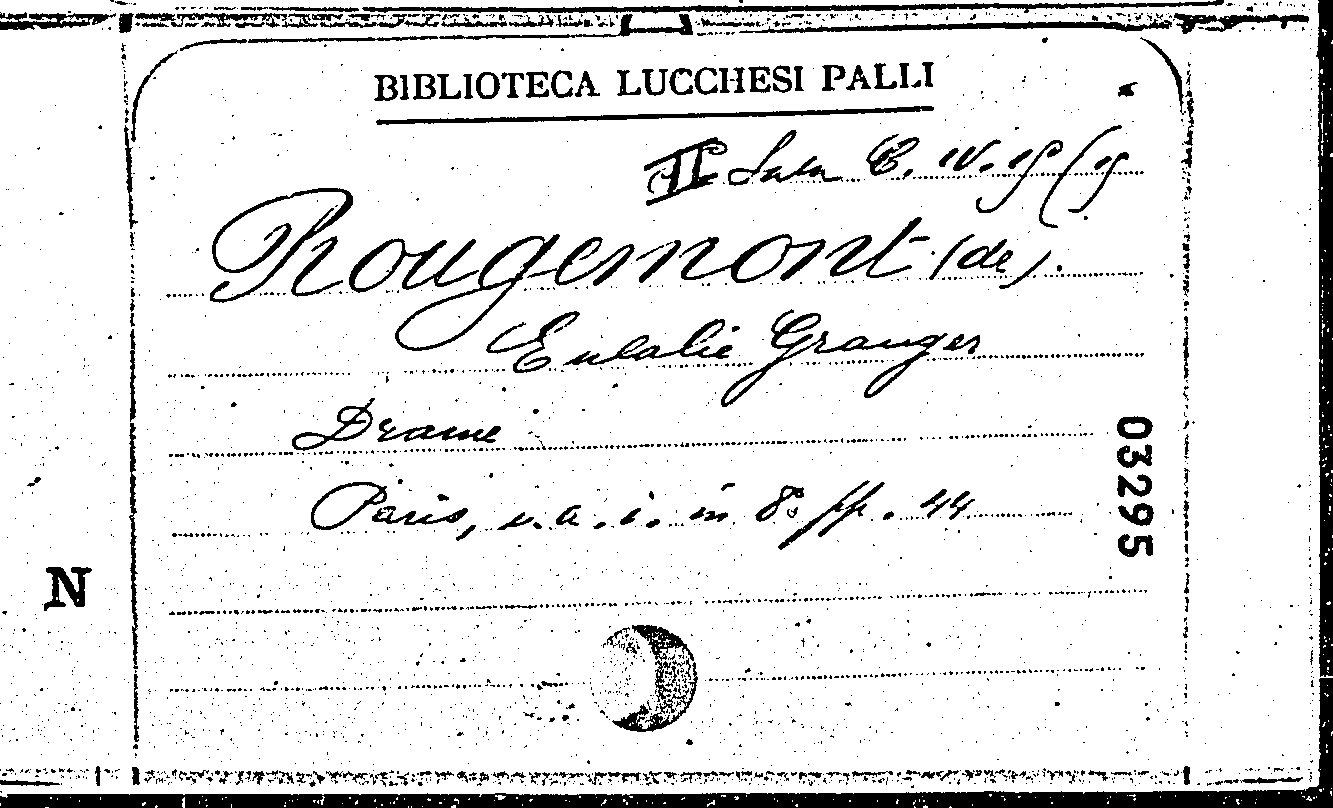 BIBLIOTECA LUCCHESI PALLI
II Sala C. IV. 19 (19
Rougemont (de).
Eulalie Granger
Drame
Paris, s. a. i. in 8º pp. 44
03295
N